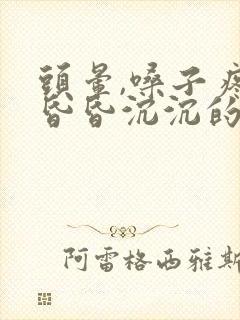 頭暈,嗓子疼
昏昏沉沉的
阿雷格西雅斯